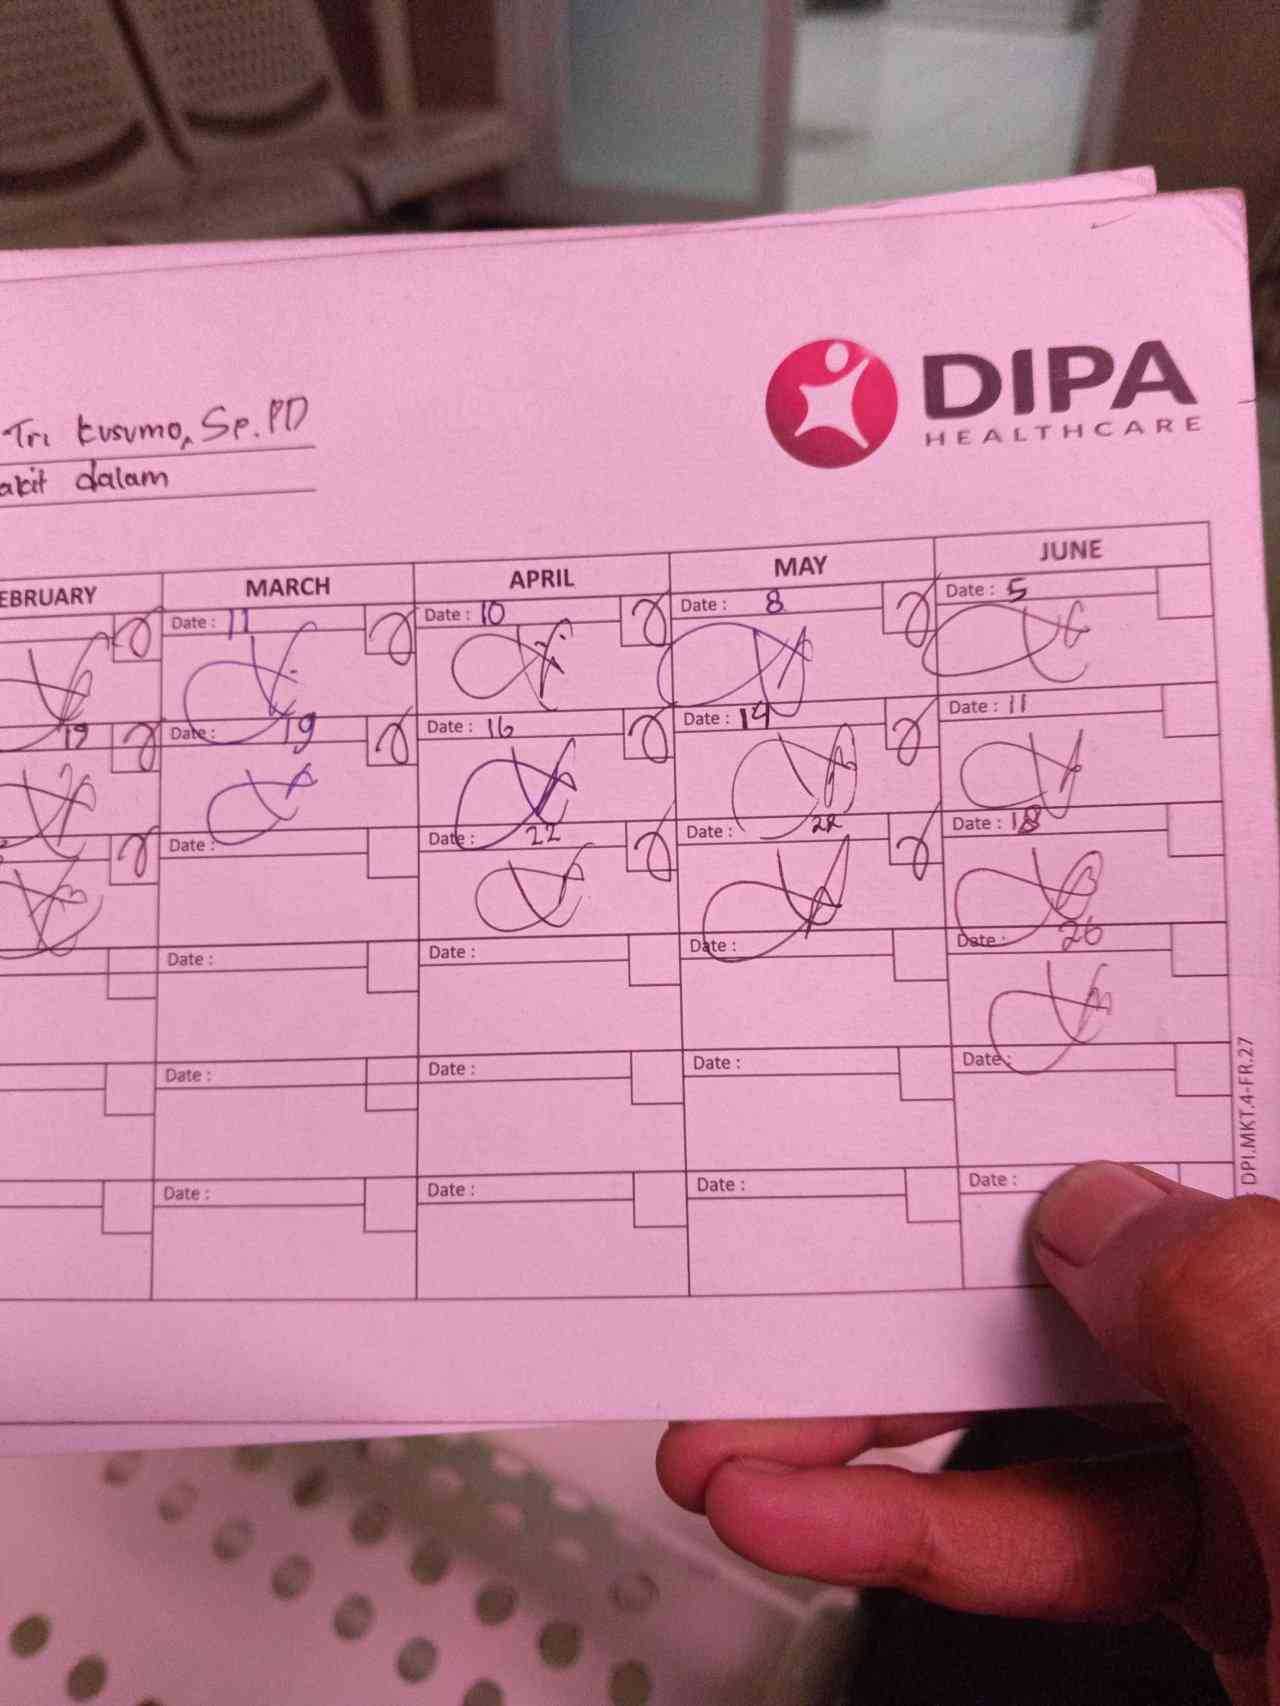 DIPA
HEALTHCARE
Tri Kusumo, Sp.PD
akit dalam
EBRUARY MARCH APRIL MAY JUNE
Date : 11 Date : 10 Date : 8 Date : 5
19 Date : 19 Date : 16 Date : 14 Date : 11
Date : Date : 22 Date : 22 Date : 18
Date : Date : Date : Date : 26
Date : Date : Date : Date :
Date : Date : Date : Date :
DPI.MKT.4-FR.27